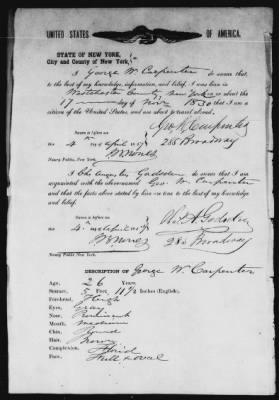 UNITED STATES OF AMERICA.
STATE OF NEW YORK,
City and County of New York,
I George W. Carpenter do swear that,
to the best of my knowledge, information and belief, I was born in
Westchester County New York on or about the
17 day of Nov 1830 that I am a
citizen of the United States, and am about to travel abroad.
Geo. W. Carpenter
Sworn to before me
this 4 day of April 1857
288 Broadway
Notary Public, New York.
I do swear that I am
acquainted with the abovenamed Geo. W. Carpenter
and that the facts above stated by him are true to the best of my knowledge and
belief.
Sworn to before me
this 4 day of April 1857
Broadway
Notary Public, New York.
DESCRIPTION OF George W. Carpenter
Age, 26 Years.
Stature, 5 Feet 11½ Inches (English).
Forehead, High
Eyes, Gray
Nose, Prominent
Mouth, medium
Chin, Round
Hair, Brown
Complexion, Florid
Face, Full & oval